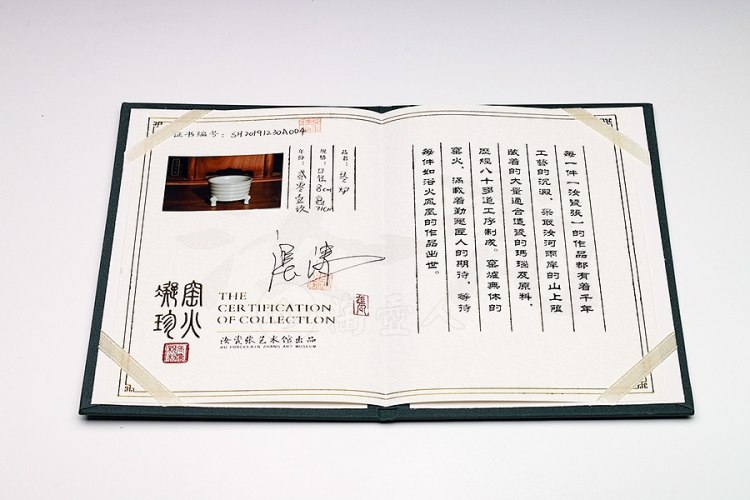 证书编号：SH20191230A004
品名：炉
规格：口径8cm高
年份：贰零壹玖
窑火
凝珍
THE
CERTIFICATION
OF COLLECTION
汝瓷张艺术馆出品
RU PORCELAIN ZHANG ART MUSEUM
每一件一汝瓷张一的作品都有着千年
工艺的沉淀，采取汝河两岸的山上蕴
藏着的大量适合造瓷的玛瑙及原料，
历经八十多道工序制成。窑炉无休的
窑火，满载着勤恳匠人的期待，等待
每件如浴火凤凰的作品出世。